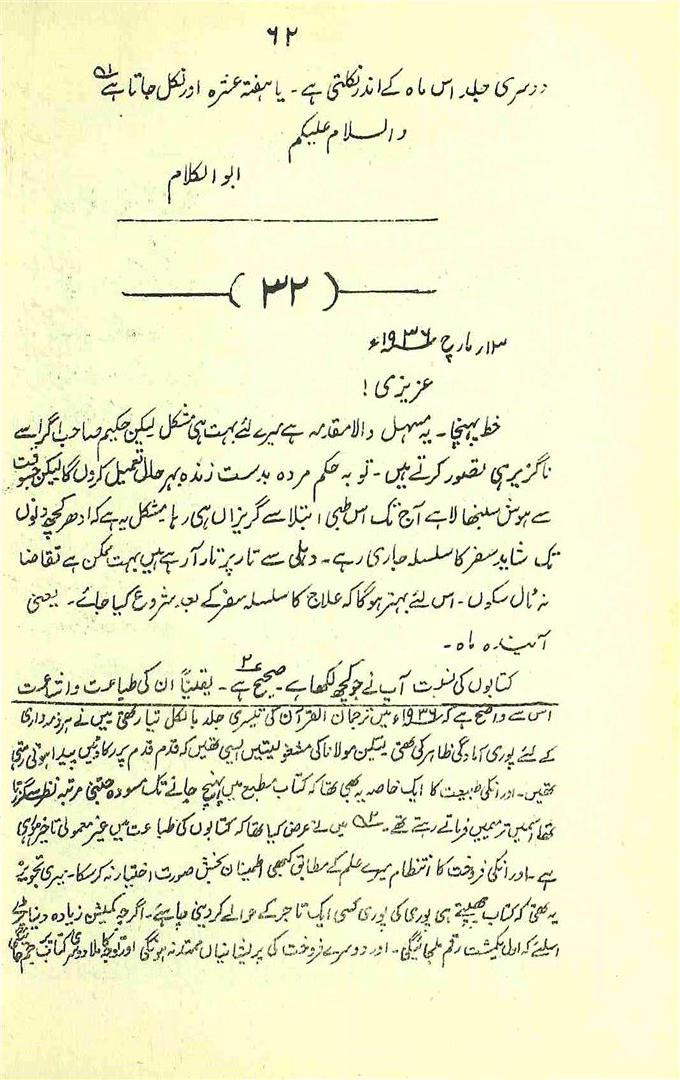 ۶۲
دوسری جلد اس ماہ کے اندر نکلتی ہے ۔ یا ہفتہ عشرہ اور نکل جاتا ہے ۱؎
والسلام علیکم
ابوالکلام
(۳۲)
۱۳ر مارچ ۱۹۳۶ء
عزیزی !
خط پہنچا ۔ یہ مسہل والا مقدمہ ہے میرے لئے بہت ہی مشکل لیکن حکیم صاحب اگر اسے
ناگزیر ہی تصور کرتے ہیں ۔ تو بہ حکم مردہ بدست زندہ بہرحال تعمیل کروں گا لیکن جس وقت
سے ہوش سنبھالا ہے آج تک اس طبی ابتلا سے گریزاں ہی رہا مشکل یہ ہے کہ ادھر کچھ دنوں
تک شاید سفر کا سلسلہ جاری رہے ۔ دہلی سے تار پر تار آ رہے ہیں بہت ممکن ہے تقاضا
نہ ٹال سکوں ۔ اس لئے بہتر ہوگا کہ علاج کا سلسلہ سفر کے بعد شروع کیا جائے ۔ یعنی
آئندہ ماہ ۔
کتابوں کی نسبت آپ نے جو کچھ لکھا ہے ۔ صحیح ۲؎ ہے ۔ یقیناً ان کی طباعت و اشاعت
اس سے واضح ہے کہ ۱۹۳۶ء میں ترجمان القرآن کی تیسری جلد بالکل تیار تھی میں نے ہر ذمہ داری
کے لئے پوری آمادگی ظاہر کی تھی لیکن مولانا کی مشغولیتیں ایسی تھیں کہ قدم قدم پر رکاوٹیں پیدا ہوتی رہتی
تھیں ۔ اور انکی طبیعت کا ایک خاصہ یہ بھی تھا کہ کتاب مطبع میں پہنچ جانے تک مسودہ جتنی مرتبہ نظر سے گزرتا
تھا اسمیں ترمیمیں فرماتے رہتے تھے ۔ ۲؎ میں نے عرض کیا تھا کہ کتابوں کی طباعت میں غیر معمولی تاخیر ہو رہی
ہے ۔ اور انکی فروخت کا انتظام میرے علم کے مطابق کبھی اطمینان بخش صورت اختیار نہ کر سکا ۔ میری تجویز
یہ تھی کہ کتاب چھپتے ہی پوری کی پوری کسی ایک تاجر کے حوالے کر دینی چاہئے ۔ اگرچہ کمیشن زیادہ دینا پڑے
اسلئے کہ اول یکمشت رقم ملجائیگی ۔ اور دوسرے فروخت کی پریشانیاں ممتد نہ ہونگی اور توجہ کاملاً دوسری کتاب پر